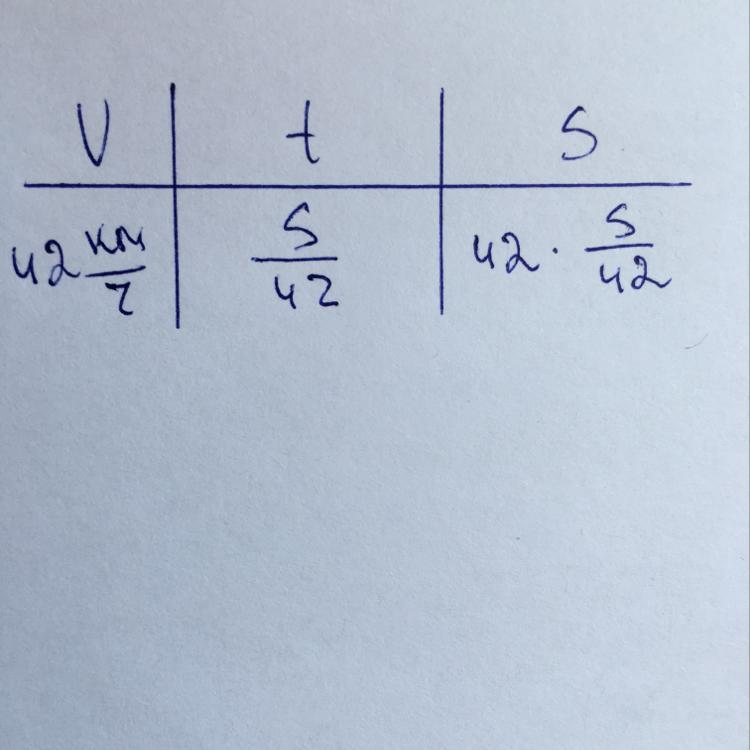 V t S
42 км/ч S/42 42 · S/42